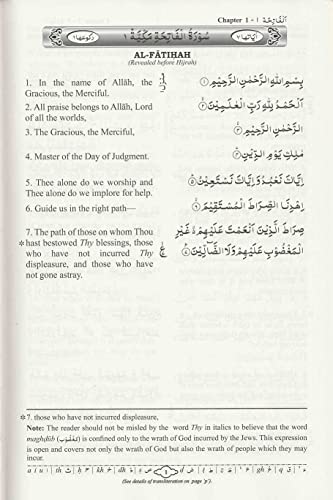 Chapter 1 - ١ اَلْفَاتِحَة
اٰيَاتُهَا ٧ سُوْرَةُ الْفَاتِحَةِ مَكِّيَّةٌ ١ رُكُوْعُهَا ١
AL-FĀTIḤAH
(Revealed before Hijrah)
1. In the name of Allāh, the
Gracious, the Merciful.
بِسْمِ اللّٰهِ الرَّحْمٰنِ الرَّحِيْمِ ①
2. All praise belongs to Allāh, Lord
of all the worlds,
اَلْحَمْدُ لِلّٰهِ رَبِّ الْعٰلَمِيْنَ ②
3. The Gracious, the Merciful,
الرَّحْمٰنِ الرَّحِيْمِ ③
4. Master of the Day of Judgment.
مٰلِكِ يَوْمِ الدِّيْنِ ④
5. Thee alone do we worship and
Thee alone do we implore for help.
اِيَّاكَ نَعْبُدُ وَاِيَّاكَ نَسْتَعِيْنُ ⑤
6. Guide us in the right path—
اِهْدِنَا الصِّرَاطَ الْمُسْتَقِيْمَ ⑥
7. The path of those on whom Thou
*hast bestowed Thy blessings, those
who have not incurred Thy
displeasure, and those who have
not gone astray.
صِرَاطَ الَّذِيْنَ اَنْعَمْتَ عَلَيْهِمْ غَيْرِ
الْمَغْضُوْبِ عَلَيْهِمْ وَلَا الضَّآلِّيْنَ ⑦
*7. those who have not incurred displeasure,
Note: The reader should not be misled by the word Thy in italics to believe that the word
maghḍūb (مَغْضُوْب) is confined only to the wrath of God incurred by the Jews. This expression
is open and covers not only the wrath of God but also the wrath of people which they may
incur.
1
(See details of transliteration on page 'p').